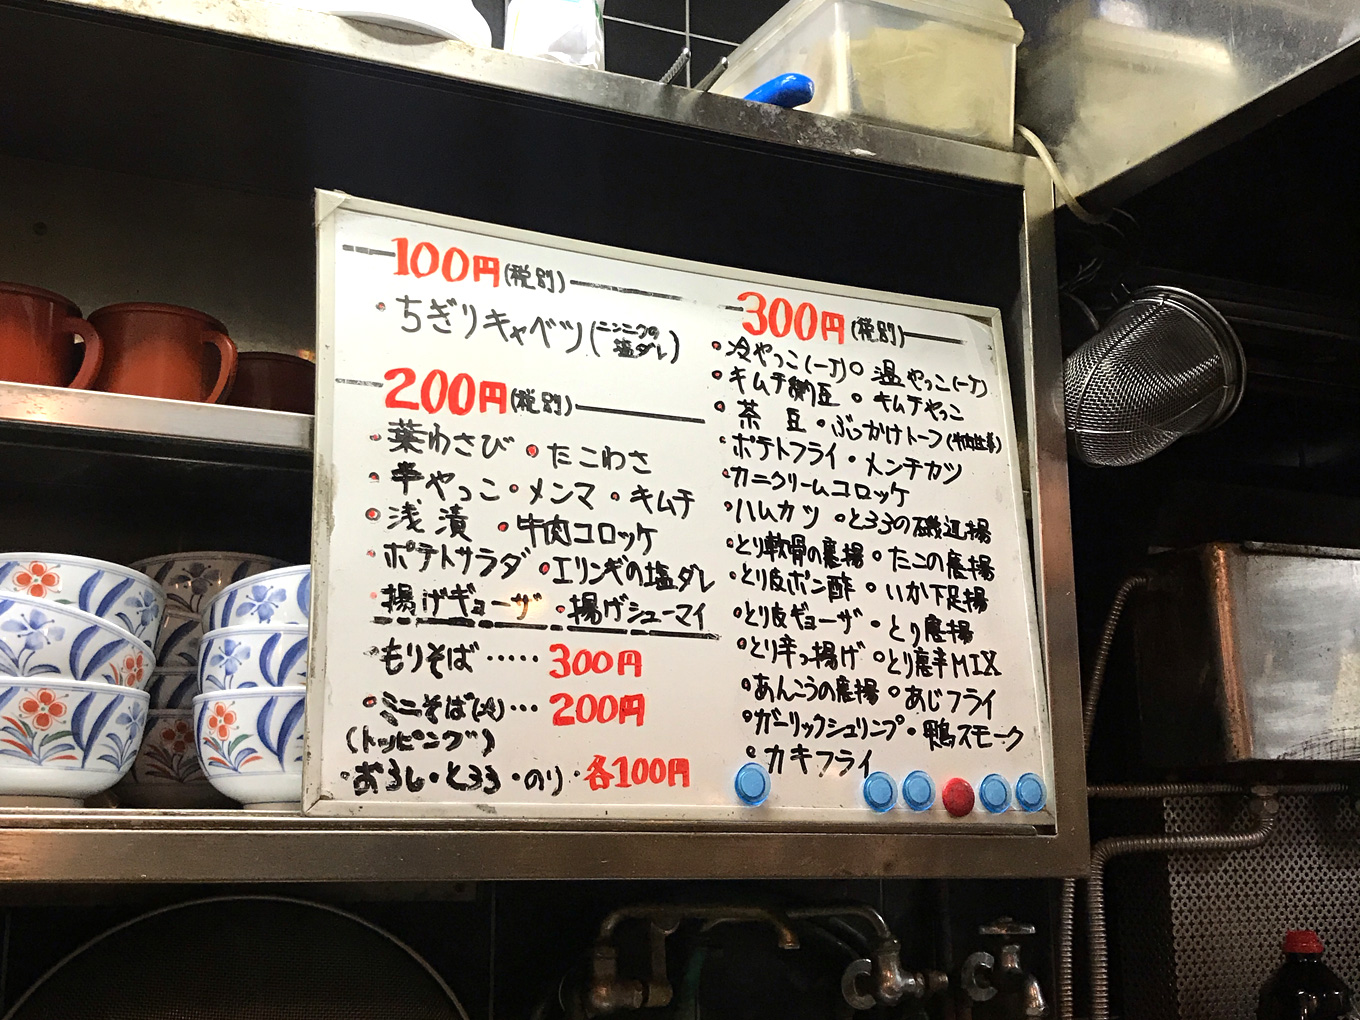 100円(税別)
・ちぎりキャベツ(ニンニクの塩ダレ)
200円(税別)
・葉わさび ・たこわさ
・辛やっこ ・メンマ ・キムチ
・浅漬 ・牛肉コロッケ
・ポテトサラダ ・エリンギの塩ダレ
・揚げギョーザ ・揚げシューマイ
・もりそば ····· 300円
・ミニそば ··· 200円
(トッピング)
・おろし・とろろ・のり・各100円
300円(税別)
・冷やっこ(一丁)・温やっこ(一丁)
・キムチ納豆 ・キムチやっこ
・茶豆 ・ぶっかけトーフ
・ポテトフライ・メンチカツ
・カニクリームコロッケ
・ハムカツ ・とろろの磯辺揚
・とり軟骨の唐揚 ・たこの唐揚
・とり皮ポン酢 ・いか下足揚
・とり皮ギョーザ ・とり唐揚
・とり辛っ揚げ ・とり唐辛MIX
・あんこうの唐揚 ・あじフライ
・ガーリックシュリンプ・鴨スモーク
・カキフライ